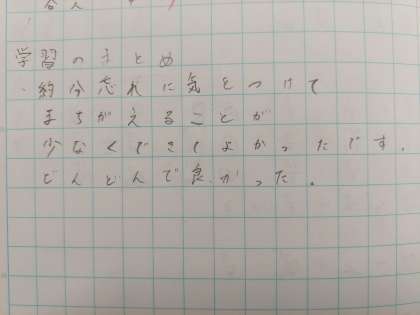 学習のまとめ
・約分忘れに気をつけて
まちがえることが
少なくできてよかったです。
どんどんで良かった。